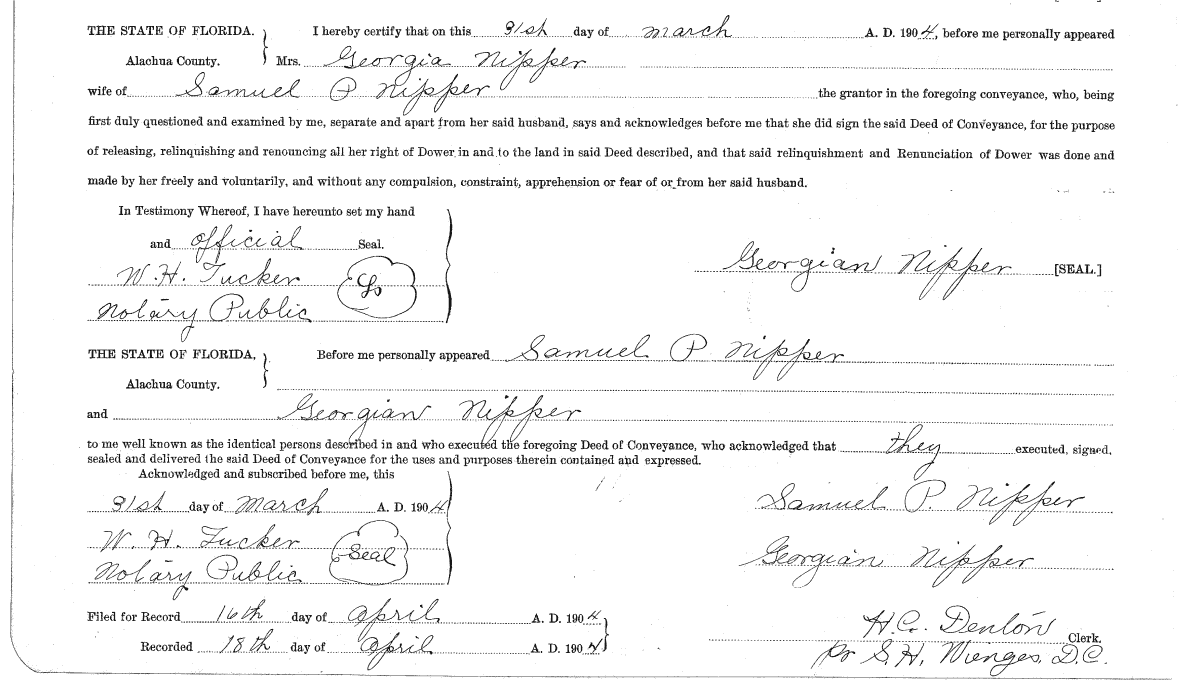 THE STATE OF FLORIDA. } I hereby certify that on this 31st day of March A. D. 1904, before me personally appeared
Alachua County. Mrs. Georgia Nipper
wife of Samuel P Nipper the grantor in the foregoing conveyance, who, being
first duly questioned and examined by me, separate and apart from her said husband, says and acknowledges before me that she did sign the said Deed of Conveyance, for the purpose
of releasing, relinquishing and renouncing all her right of Dower in and to the land in said Deed described, and that said relinquishment and Renunciation of Dower was done and
made by her freely and voluntarily, and without any compulsion, constraint, apprehension or fear of or from her said husband.
In Testimony Whereof, I have hereunto set my hand
and official Seal.
W. H. Tucker
Notary Public
Georgian Nipper [SEAL.]
THE STATE OF FLORIDA, } Before me personally appeared Samuel P Nipper
Alachua County.
and Georgian Nipper
to me well known as the identical persons described in and who executed the foregoing Deed of Conveyance, who acknowledged that they executed, signed,
sealed and delivered the said Deed of Conveyance for the uses and purposes therein contained and expressed.
Acknowledged and subscribed before me, this
31st day of March A. D. 1904
W. H. Tucker
Notary Public
Seal
Samuel P. Nipper
Georgian Nipper
Filed for Record 16th day of April A. D. 1904
Recorded 18th day of April A. D. 1904
H. C. Denton Clerk.
Pr S. H. Wienges. D.C.